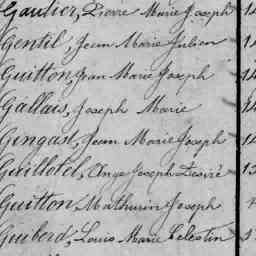 Gautier, Pierre Marie Joseph 14
Gentil, Jean Marie Julien 14
Guitton, Jean Marie Joseph 14
Gallais, Joseph Marie 14
Gingast, Jean Marie Joseph 14
Guillotel, Ange Joseph Désiré 13
Guitton, Mathurin Joseph
Guiberd, Louis Marie Célestin